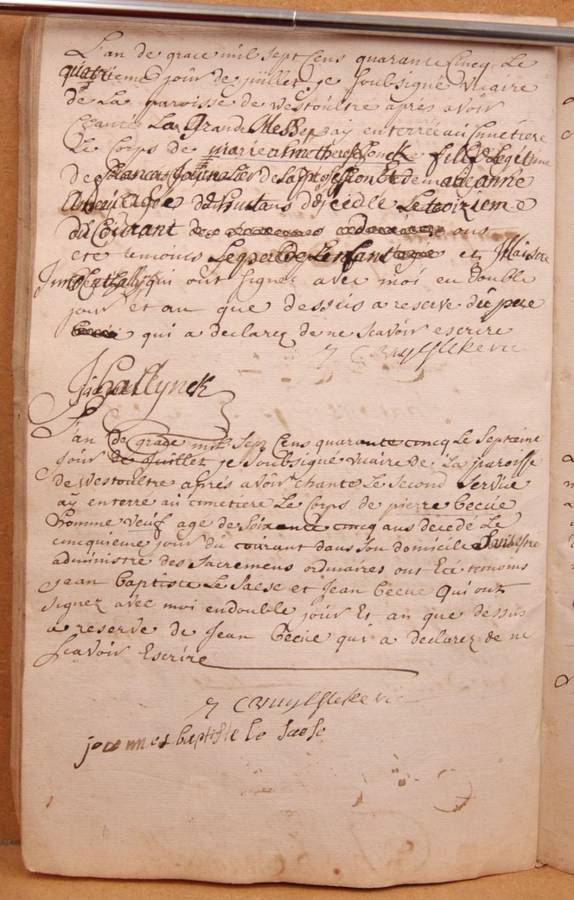 L'an de grace mil sept Cens quarante Cincq Le
quatrieme jour de juillet je soubsigné vicaire
de La paroisse de Westoultre après avoir
Chanté La Grande Messe ay enterré au Cimetiere
Le Corps de marie fille Legitime
de françois journalier de La profession et de marie anne
decedée Le troizieme
du Courant ans
ete temoins Le pere de L'enfant et Maitre
qui ont signez avec moi en double
jour et an que dessus a reserve du pere
qui a declarez de ne scavoir escrire
J hallynck
L'an de grace mil sept Cens quarante cincq Le septieme
jour de Juillet je soubsigné vicaire de La paroisse
de Westoultre après avoir chanté Le second service
ay enterré au cimetiere Le Corps de pierre Becue
homme veuf agé de soixante cincq ans decedé Le
cincquieme jour du courant dans son domicile
administré des sacremens ordinaires ont Eté temoins
jean baptiste Le saese et jean Becue Qui ont
signez avec moi en double jour Et an que dessus
a reserve de jean Becue qui a declarez de ne
scavoir Escrire
joannes baptiste le saese